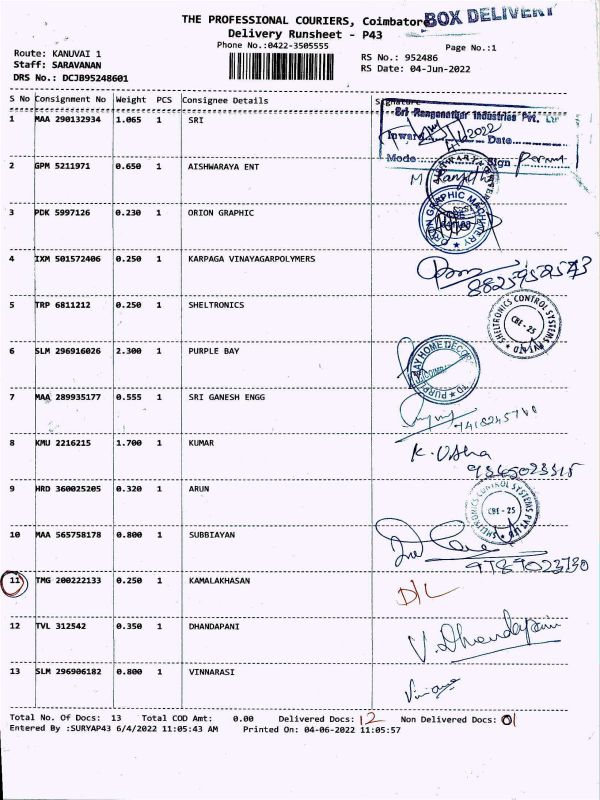 THE PROFESSIONAL COURIERS, Coimbatore
BOX DELIVERY
Delivery Runsheet - P43
Phone No.:0422-3505555
Page No.:1
Route: KANUVAI 1
Staff: SARAVANAN
DRS No.: DCJB95248601
RS No.: 952486
RS Date: 04-Jun-2022
S No Consignment No Weight PCS Consignee Details Signature
1 MAA 290132934 1.065 1 SRI
Sri Ranganathar Industries Pvt. Ltd
Inward Date
Mode Sign
2 GPM 5211971 0.650 1 AISHWARAYA ENT
3 PDK 5997126 0.230 1 ORION GRAPHIC
ORION GRAPHIC MACHINERY
4 IXM 501572406 0.250 1 KARPAGA VINAYAGARPOLYMERS
5 TRP 6811212 0.250 1 SHELTRONICS
SHELTRONICS CONTROL SYSTEMS PVT LTD
CBE - 25
6 SLM 296916026 2.300 1 PURPLE BAY
7 MAA 289935177 0.555 1 SRI GANESH ENGG
8 KMU 2216215 1.700 1 KUMAR
K. Usha
9 HRD 360025205 0.320 1 ARUN
SHELTRONICS CONTROL SYSTEMS PVT LTD
CBE - 25
10 MAA 565758178 0.800 1 SUBBIAYAN
11 TMG 200222133 0.250 1 KAMALAKHASAN D/L
12 TVL 312542 0.350 1 DHANDAPANI V. Dhandapani
13 SLM 296906182 0.800 1 VINNARASI
Total No. Of Docs: 13 Total COD Amt: 0.00 Delivered Docs: 12 Non Delivered Docs: 01
Entered By :SURYAP43 6/4/2022 11:05:43 AM Printed On: 04-06-2022 11:05:57